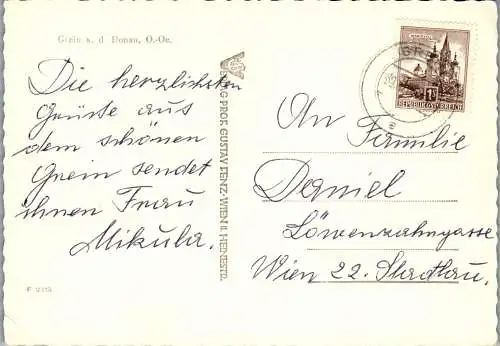 Grein a. d. Donau, O.-Oe.
Die herzlichsten
Grüße aus
dem schönen
Grein sendet
ihnen Frau
Mikula.
VERLAG PROF. GUSTAV DENZ-WIEN
REPUBLIK ÖSTERREICH
An Familie
Daniel
Löwenzahngasse
Wien 22. Stadlau.